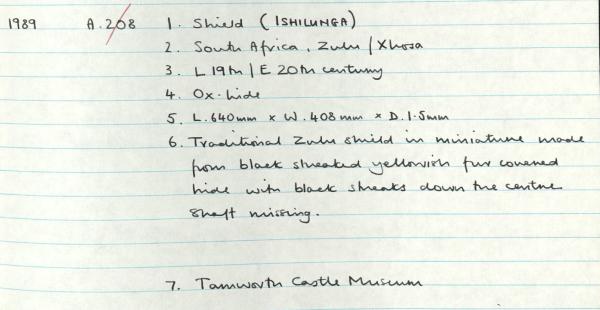 1989 A.208 1. Shield (ISHILUNGA)
2. South Africa, Zulu / Xhosa
3. L 19th / E 20th century
4. Ox-hide
5. L.640mm x W.408mm x D.1.5mm
6. Traditional Zulu shield in miniature made
from black streaked yellowish fur covered
hide with black streaks down the centre
shaft missing.
7. Tamworth Castle Museum